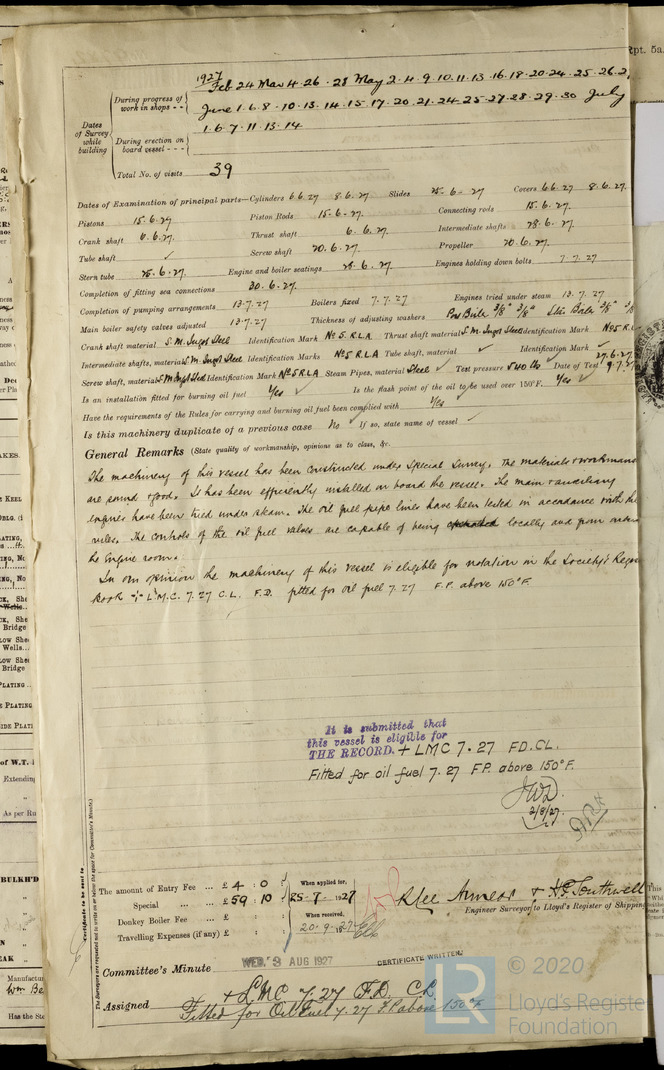 Rpt. 5a.
1927
Feb 24 Mar 4 · 26 · 28 May 2 · 4 · 9 · 10 · 11 · 13 · 16 · 18 · 20 · 24 · 25 · 26 · 2
During progress of work in shops - -
June 1 · 6 · 8 · 10 · 13 · 14 · 15 · 17 · 20 · 21 · 24 · 25 · 27 · 28 · 29 · 30 July
Dates of Survey while building
1 · 6 · 7 · 11 · 13 · 14
During erection on board vessel - - -
Total No. of visits 39
Dates of Examination of principal parts—Cylinders 6.6.27 8.6.27 Slides 25.6.27 Covers 6.6.27 8.6.27
Pistons 15.6.27 Piston Rods 15.6.27 Connecting rods 15.6.27
Crank shaft 6.6.27 Thrust shaft 6.6.27 Intermediate shafts 28.6.27
Tube shaft ✓ Screw shaft 20.6.27 Propeller 20.6.27
Stern tube 25.6.27 Engine and boiler seatings 25.6.27 Engines holding down bolts 7.7.27
Completion of fitting sea connections 30.6.27
Completion of pumping arrangements 13.7.27 Boilers fixed 7.7.27 Engines tried under steam 13.7.27
Main boiler safety valves adjusted 13.7.27 Thickness of adjusting washers 3/8" 3/8" 3/8"
Crank shaft material S.M. Ingot Steel Identification Mark No 5. RLA Thrust shaft material S.M. Ingot Steel Identification Mark No 5 RL
Intermediate shafts, material S.M. Ingot Steel Identification Marks No 5 RLA Tube shaft, material ✓ Identification Mark ✓
Screw shaft, material S.M. Ingot Steel Identification Mark No 5 RLA Steam Pipes, material Steel ✓ Test pressure 540 lb Date of Test 27.6.27 9.7.27
Is an installation fitted for burning oil fuel Yes ✓ Is the flash point of the oil to be used over 150°F. Yes ✓
Have the requirements of the Rules for carrying and burning oil fuel been complied with Yes ✓
Is this machinery duplicate of a previous case No ✓ If so, state name of vessel ✓
General Remarks (State quality of workmanship, opinions as to class, &c.
The machinery of this vessel has been constructed under Special Survey. The materials & workman
are sound & good. It has been efficiently installed on board the vessel. The main & auxiliary
engines have been tried under steam. The oil fuel pipe lines have been tested in accordance with the
rules. The controls of the oil fuel valves are capable of being operated locally and from outside
the Engine room.
In our opinion the machinery of this vessel is eligible for notation in the Society's Regis
Book + L.M.C. 7.27 C.L. F.D. fitted for oil fuel 7.27 F.P. above 150°F.
It is submitted that
this vessel is eligible for
THE RECORD. + LMC 7.27 FD.CL.
Fitted for oil fuel 7.27 F.P. above 150°F.
2/8/27
Certificate to be sent to
The Surveyors are requested not to write on or below the space for Committee's Minute.)
The amount of Entry Fee ... £ 4 : 0 : When applied for,
Special ... ... £ 59 : 10 : 25-7-1927
Donkey Boiler Fee ... £ : : When received,
Travelling Expenses (if any) £ : : 20-9-1927
& H.F. Southwell
Engineer Surveyor to Lloyd's Register of Shipping
Committee's Minute WED. 3 AUG 1927 CERTIFICATE WRITTEN.
Assigned + LMC 7.27 F.D. CL
Fitted for Oil Fuel 7.27 F.P. above 150°F
LR © 2020
Lloyd's Registe
Foundation